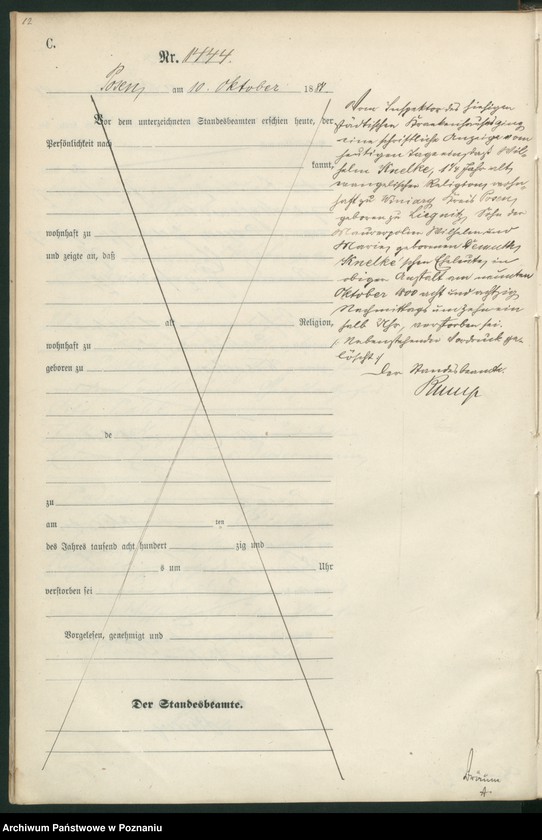 12
C.
Nr. 1444.
Posen, am 10. Oktober 1888.
Vor dem unterzeichneten Standesbeamten erschien heute, der
Persönlichkeit nach
kannt,
wohnhaft zu
und zeigte an, daß
alt Religion,
wohnhaft zu
geboren zu
de
zu
am ten
des Jahres tausend acht hundert zig und
s um Uhr
verstorben sei
Vorgelesen, genehmigt und
Der Standesbeamte.
Vom Inspektor des hiesigen
städtischen Krankenhauses ging
eine schriftliche Anzeige vom
heutigen Tage ein, daß Wil-
helm Knelke, Jahr alt,
evangelischer Religion, wohn-
haft zu Winiary Kreis Posen,
geboren zu Liegnitz, Sohn der
Maurerpolier Wilhelm und
Marie, geborenen
Knelke'schen Eheleute, in
obiger Anstalt am neunten
Oktober 1800 acht und achtzig
Nachmittags um zehn ein
halb Uhr, verstorben sei.
(Nebenstehender Vordruck ge-
löscht)
Der Standesbeamte.
Archiwum Państwowe w Poznaniu